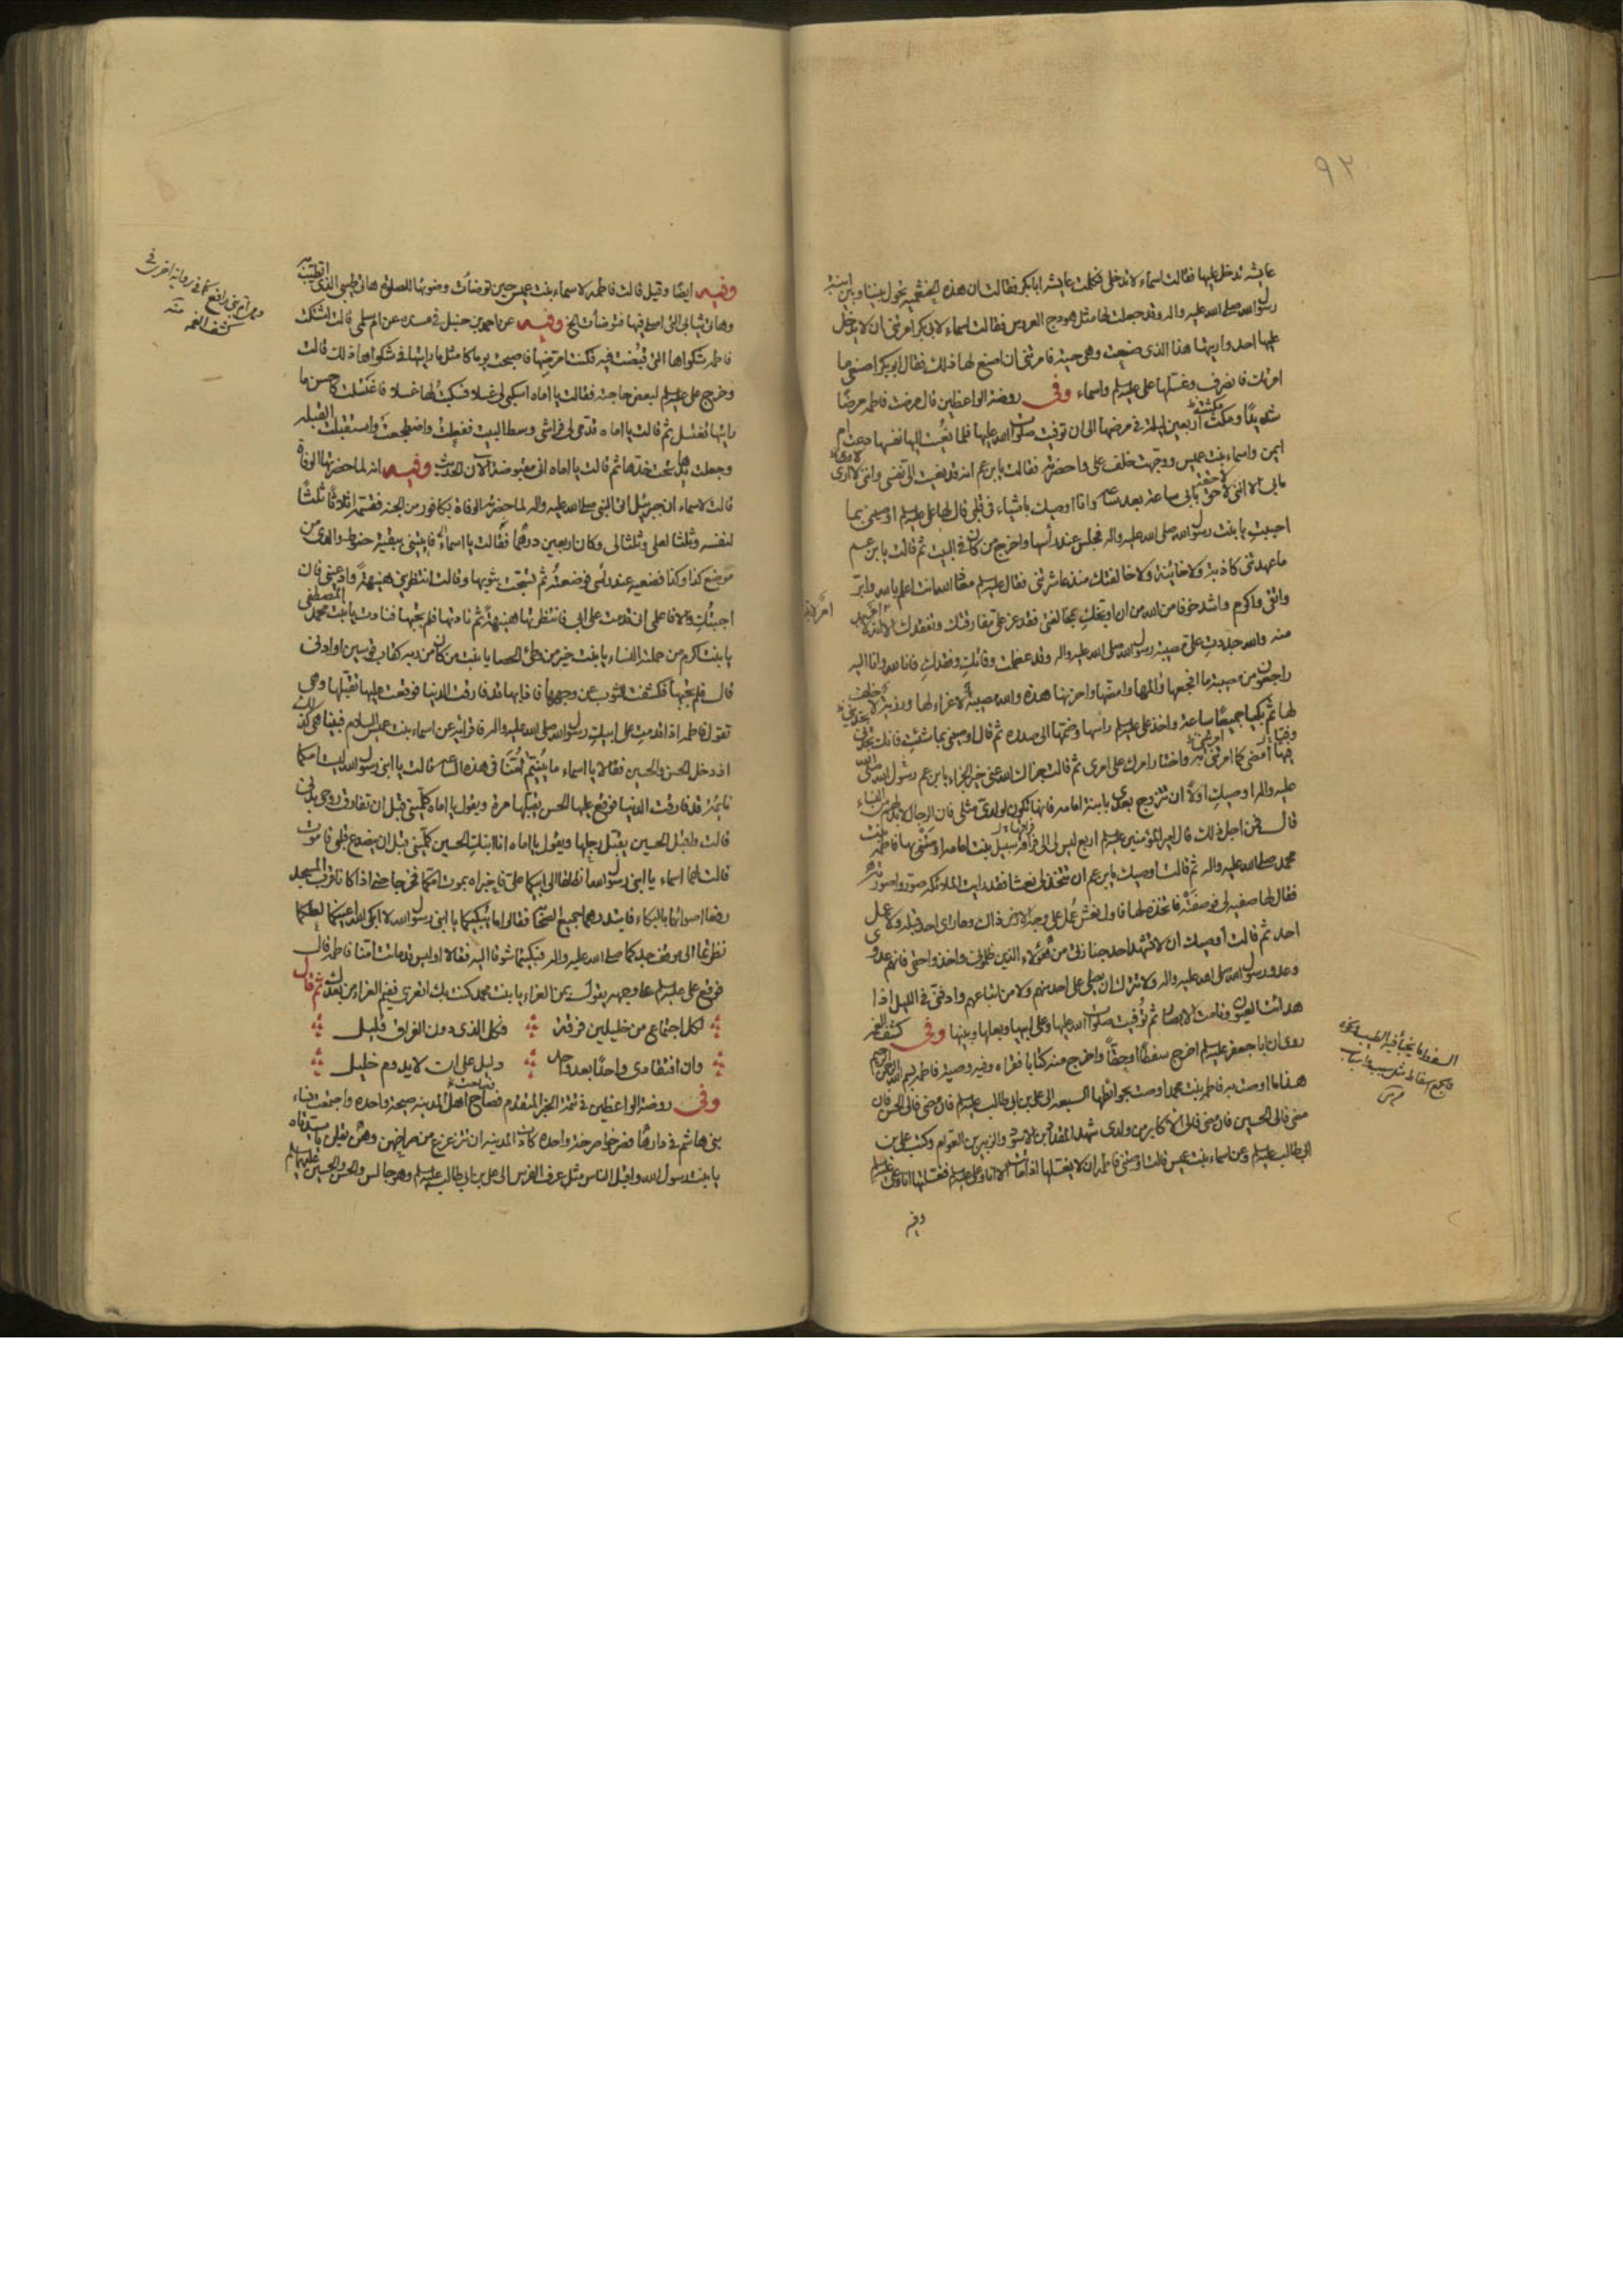 ٩٢
عايشه تدخل عليها فقالت اسماء لا تدخلى فكلمت عايشه ابابكر فقالت ان هذه الخثعمية تحول بيننا وبين ابنة
رسول الله صلى الله عليه واله وقد جعلت لها مثل هودج العروس فقالت اسماء لابى بكر امرتنى ان لا يدخل
عليها احد واريتها هذا الذى صنعت وهى حية فامرتنى ان اصنع لها ذلك فقال ابو بكر اصنعى ما
امرتك فانصرف وغسلها على عليه السلم واسماء وفى روضة الواعظين قال مرضت فاطمه مرضًا
شديدًا ومكثت اربعين ليلة فى مرضها الى ان توفيت صلوات الله عليها فلما نعيت اليها نفسها دعت ام
ايمن واسماء بنت عميس ووجهت خلف على واحضرته فقالت يابن عم انه قد نعيت الى نفسى واننى لا ارى
ما بى الا اننى لاحق بابى ساعة بعد ساعة وانا اوصيك باشياء فى قلبى قال لها على عليه السلم اوصينى بما
احببت يا بنت رسول الله صلى الله عليه واله فجلس عند رأسها واخرج من كان فى البيت ثم قالت يابن عم
ما عهدتنى كاذبة ولا خائنة ولا خالفتك منذ عاشرتنى فقال عليه السلم معاذ الله انت اعلم بالله وابر
واتقى واكرم واشد خوفا من الله من ان اوبخك بمخالفتى فقد عز على مفارقتك وتفقدك الا انه لابد
منه والله جددت على مصيبة رسول الله صلى الله عليه واله وقد عظمت وفاتك وفقدك فانا لله وانا اليه
راجعون من مصيبة ما افجعها والمها وامضها واحزنها هذه والله مصيبة لا عزاء لها ورزية لا خلف
لها ثم بكيا جميعًا ساعة واخذ على عليه السلم رأسها وضمها الى صدره ثم قال اوصينى بما شئت فانك تجدنى
فيها امضى كما امرتنى به واختار امرك على امرى ثم قالت جزاك الله عنى خير الجزاء يابن عم رسول الله صلى الله
عليه واله اوصيك اولًا ان تتزوج بعدى بابنة امامه فانها تكون لولدى مثلى فان الرجال لابد لهم من النساء
قال فمن اجل ذلك قال امير المؤمنين عليه السلم اربع ليس لى الى فراقه سبيل بنت امامه اوصتنى بها فاطمه بنت
محمد صلى الله عليه واله ثم قالت اوصيك يابن عم ان تتخذ لى نعشا فقد رايت الملائكة صوروا صورته
فقال لها صفيه لى فوصفته فاتخذه لها فاول نعش عمل على وجه الارض ذاك وما راى احد قبله ولا عمل
احد ثم قالت اوصيك ان لا تشهد احد جنازتى من هؤلاء الذين ظلمونى واخذوا حقى فانهم عدوى
وعدو رسول الله صلى الله عليه واله ولا تترك ان يصلى على احد منهم ولا من اتباعهم وادفنى فى الليل اذا
هدأت العيون ونامت الابصار ثم توفيت صلوات الله عليها وعلى ابيها وبعلها وبنيها وفى كشف الغمه
روى ان ابا جعفر عليه السلم اخرج سفطًا او حقًا واخرج منه كتابا فقراه وفيه وصية فاطمه بسم الله الرحمن الرحيم
هذا ما اوصت به فاطمه بنت محمد اوصت بحوائطها السبعه الى على بن ابى طالب عليه السلم فان مضى فالى الحسن فان
مضى فالى الحسين فان مضى فالى الاكابر من ولدى شهد المقداد بن الاسود والزبير بن العوام وكتب على بن
ابى طالب عليه السلم وعن اسماء بنت عميس قالت اوصتنى فاطمه ان لا يغسلها اذا ماتت الا انا وعلى عليه السلم فغسلتها انا وعلى عليه السلم
وفيه
السفط ما يخبأ فيه الطيب ونحوه
والجمع اسفاط مثل سبب واسباب
وفيه ايضًا وقيل قالت فاطمه لاسماء بنت عميس حين توضأت وضوئها للصلوة هاتى طيبى الذى اتطيب به
وهاتى ثيابى التى اصلى فيها فتوضأت الخ وفيه عن احمد بن حنبل فى مسنده عن ام سلمى قالت اشتكت
فاطمه شكواها التى قبضت فيه فكنت امرضها فاصبحت يوما كامثل ما رايتها فى شكواها ذلك قالت
وخرج على عليه السلم لبعض حاجته فقالت يا اماه اسكبى لى غسلا فسكبت لها غسلا فاغتسلت كاحسن ما
رايتها تغتسل ثم قالت يا اماه قدمى لى فراشى وسط البيت ففعلت واضطجعت واستقبلت القبله
وجعلت يدها تحت خدها ثم قالت يا اماه انى مقبوضة الان الحديث وفيه انه لما حضرتها الوفاة
قالت لاسماء ان جبرئيل اتى النبى صلى الله عليه واله لما حضرته الوفاة بكافور من الجنه فقسمه اثلاثًا ثلثًا
لنفسه وثلثا لعلى وثلثا لى وكان اربعين درهمًا فقالت يا اسماء فايتينى ببقية حنوط والدى من
موضع كذا وكذا فضعيه عند رأسى فوضعته ثم تسجت بثوبها وقالت انتظرينى هنيهة وادعينى فان
اجبتك والا فاعلمى انى قدمت على ابى فانتظرتها هنيهة ثم نادتها فلم تجبها فنادت يا بنت محمد المصطفى
يا بنت اكرم من حملته النساء يا بنت خير من وطئ الحصا يا بنت من كان من ربه كقاب قوسين او ادنى
قال فلم تجبها فكشفت الثوب عن وجهها فاذا بها قد فارقت الدنيا فوقعت عليها تقبلها وهى
تقول فاطمه اذا قدمت على ابيك رسول الله صلى الله عليه واله فاقرأيه عن اسماء بنت عميس السلام فبينا هى كذلك
اذ دخل الحسن والحسين فقالا يا اسماء ما ينيم امنا فى هذه الساعة قالت يا ابنى رسول الله ليست امكما
نايمة قد فارقت الدنيا فوقع عليها الحسن يقبلها مرة ويقول يا اماه كلمينى قبل ان تفارق روحى بدنى
قالت واقبل الحسين يقبل رجلها ويقول يا اماه انا ابنك الحسين كلمينى قبل ان يتصدع قلبى فاموت
قالت لهما اسماء يا ابنى رسول الله انطلقا الى ابيكما على فاخبراه بموت امكما فخرجا حتى اذا كانا قرب المسجد
رفعا اصواتهما بالبكاء فابتدرهما جميع الصحابة فقالوا ما يبكيكما يا ابنى رسول الله لا ابكى الله اعينكما لعلكما
نظرتما الى موقف جدكما صلى الله عليه واله فبكيتما شوقا اليه فقالا او ليس قد ماتت امنا فاطمه قال
فوقع على عليه السلم على وجهه يقول بمن العزاء يا بنت محمد كنت بك اتعزى ففيم العزاء من بعدك ثم قال
لكل اجتماع من خليلين فرقة وكل الذى دون الفراق قليل
وان افتقادى واحدًا بعد واحد دليل على ان لا يدوم خليل
وفى روضة الواعظين فى تتمة الخبر المتقدم فصاح اهل المدينة صيحة واحده واجتمعت نساء
بنى هاشم فى دارها فصرخوا صرخة واحده كادت المدينه ان تزعزع من صراخهن وهن يقلن يا سيدتاه
يا بنت رسول الله واقبل الناس مثل عرف الفرس الى على بن ابى طالب عليه السلم وهو جالس والحسن والحسين عليهما السلم
كما فى رواية اخرى فى
كشف الغمه منه